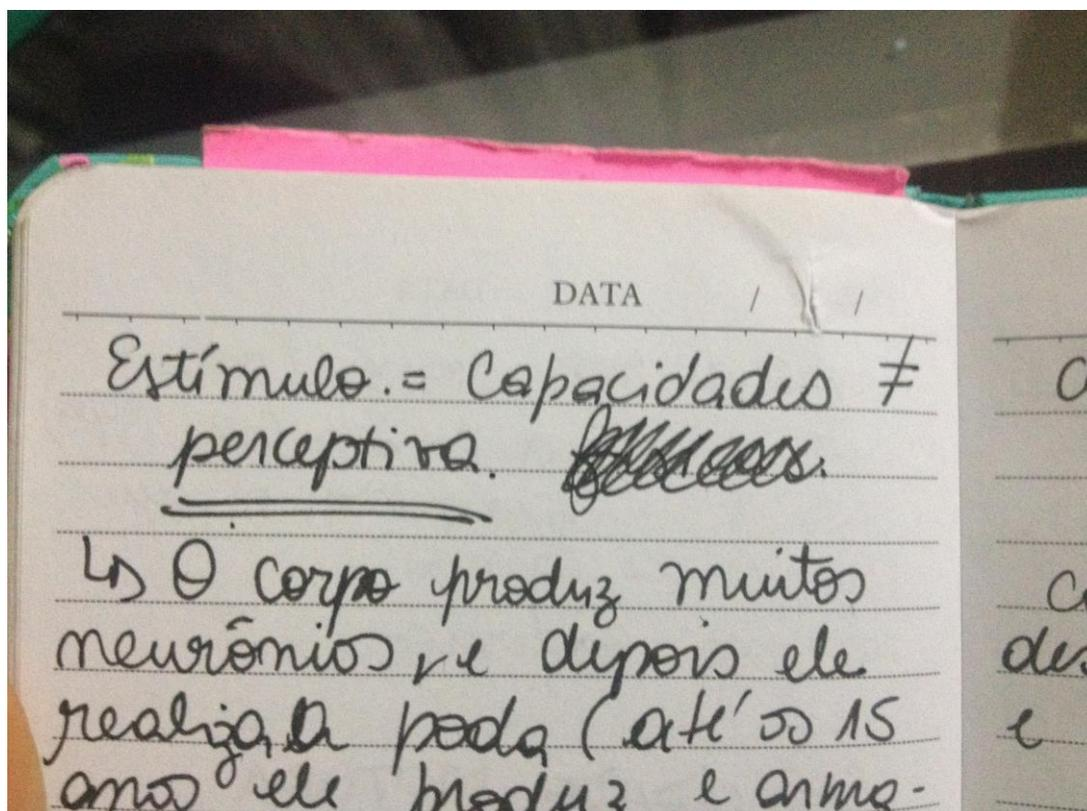 DATA / / /
Estímulo. = Capacidades ≠
perceptiva.
↳ O corpo produz muitos
neurônios, e depois ele
realiza a poda (até os 15
anos ele produz e arma-
des
e